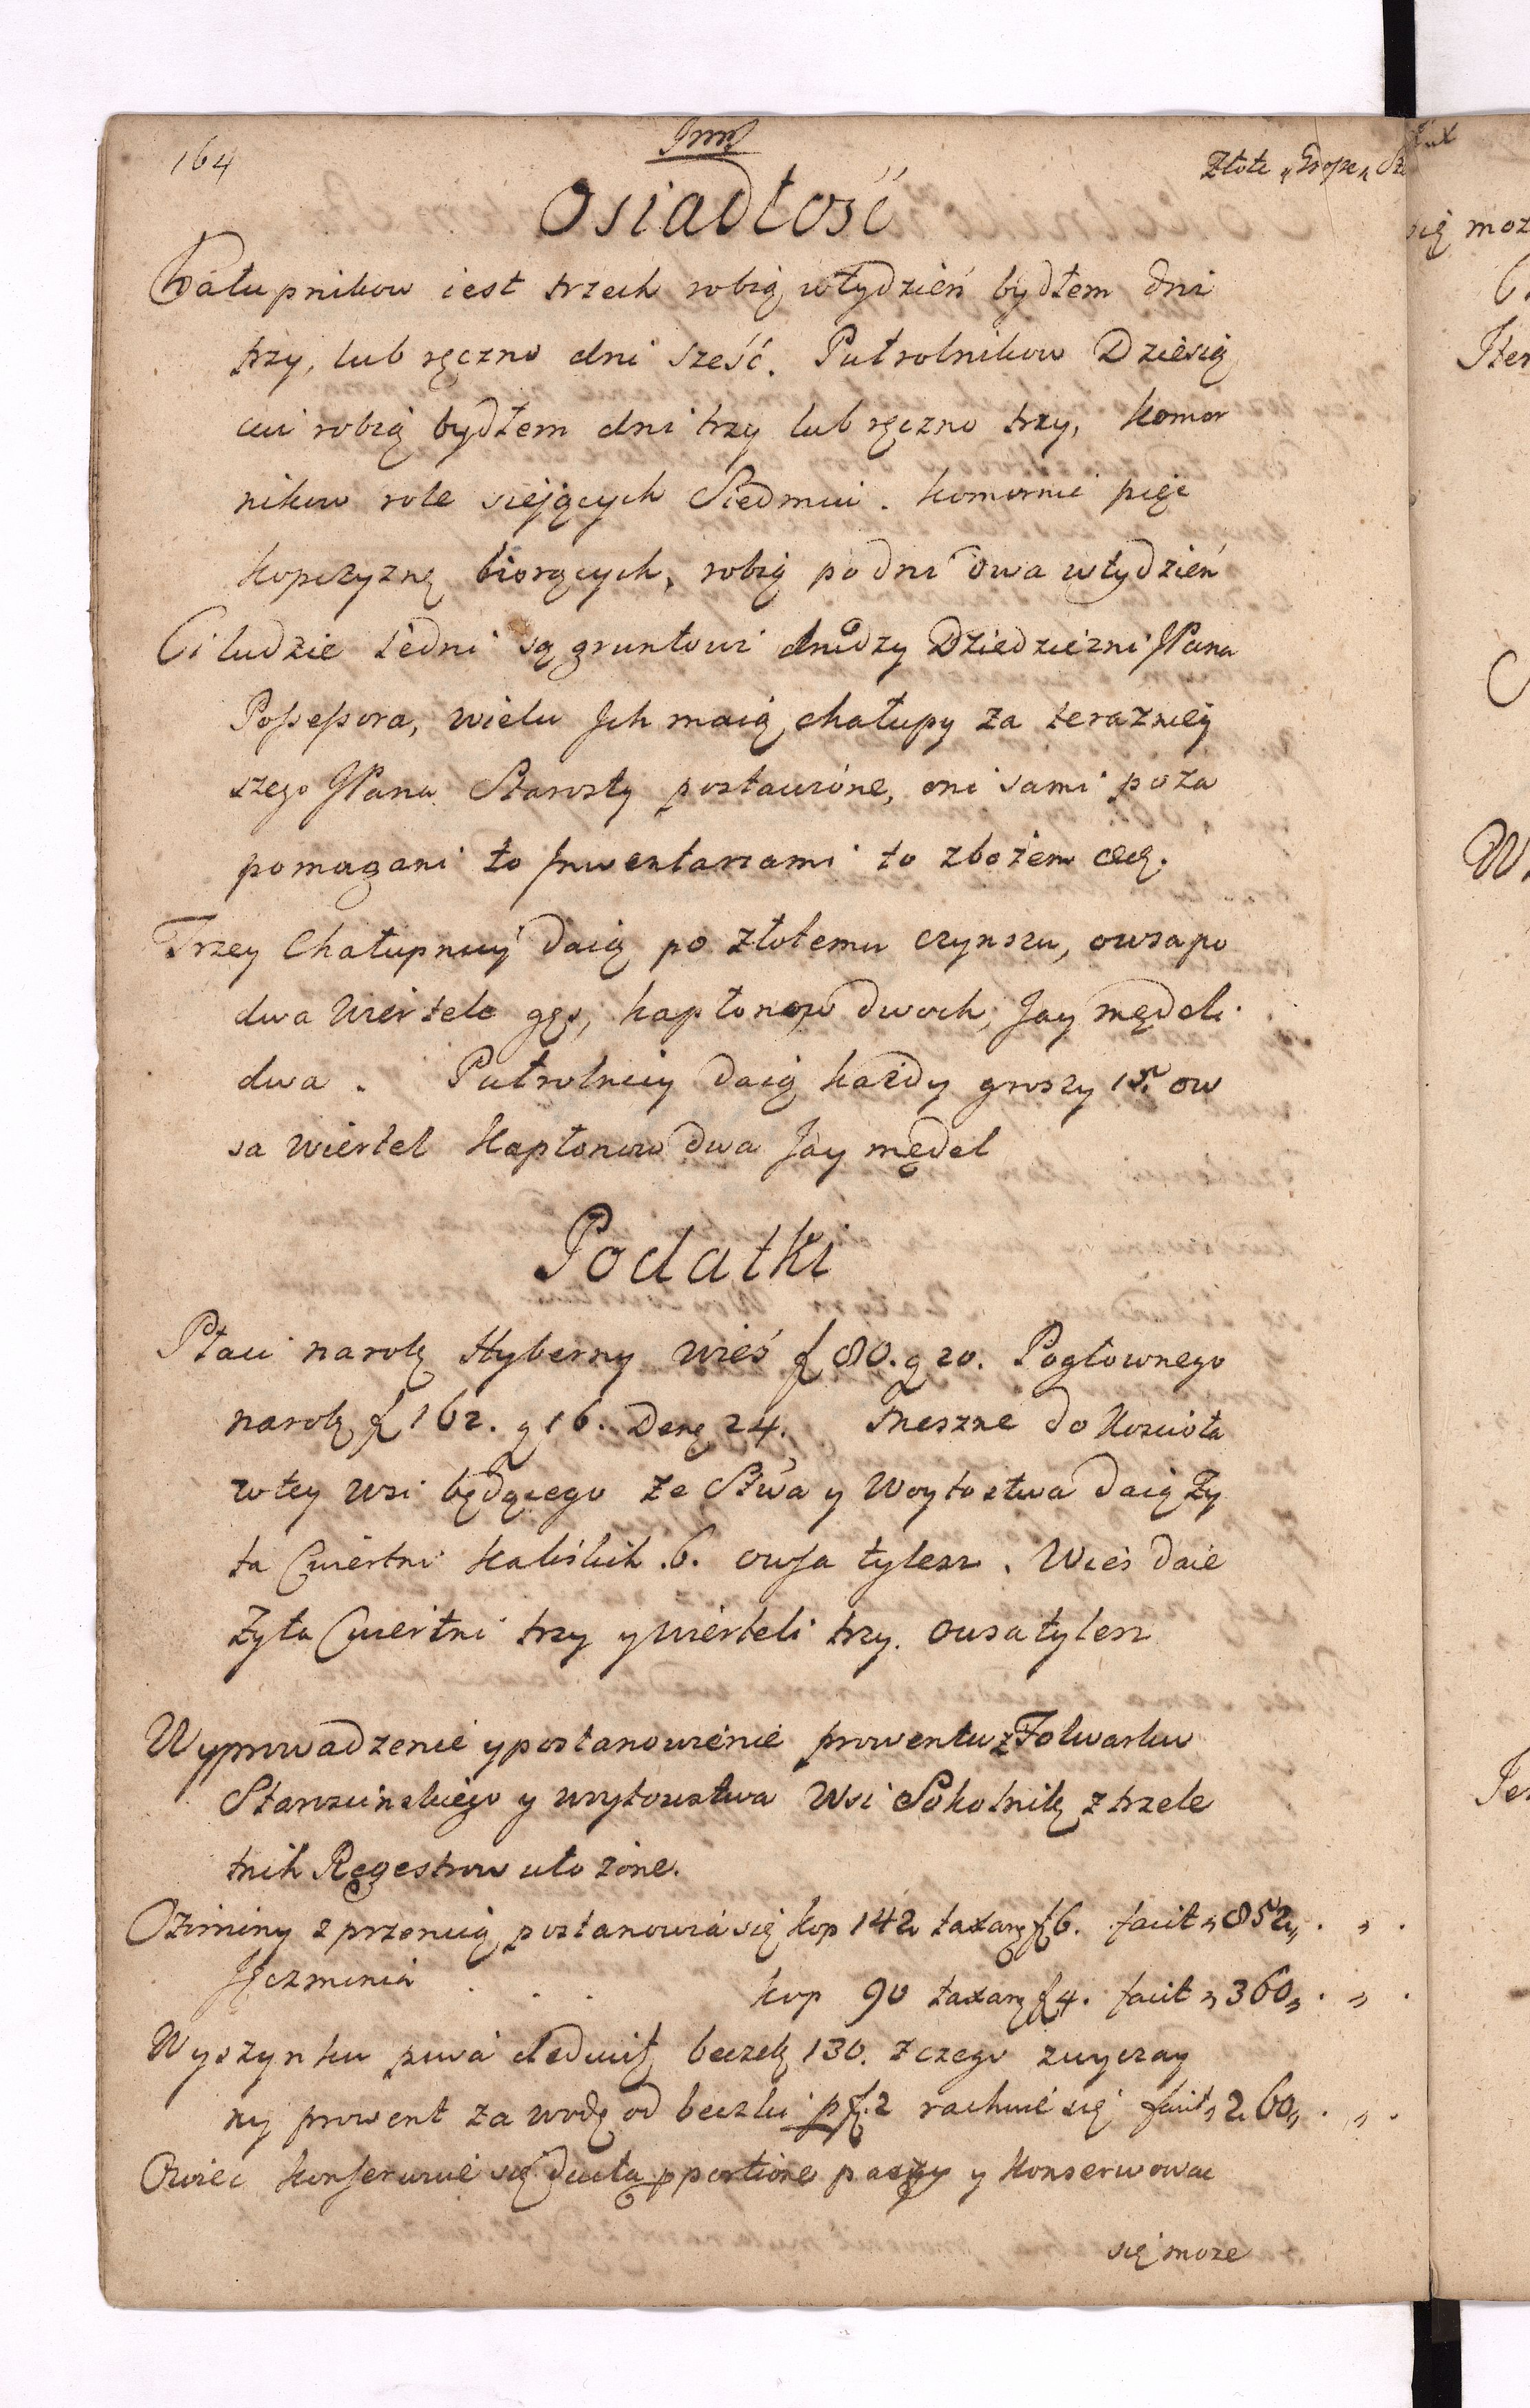 164
Złote „ Grosze „ Sze
Osiadłość
Chałupnikow iest trzech robią wtydzień bydłem dni
trzy, lub ręczno dni sześć. Pułrolnikow Dziesią
ciu robią bydłem dni trzy lub ręczno trzy, komor
nikow role siejących Siedmiu. komornic pięć
kopczyznę biorących, robią po dni dwa wtydzień
Ci ludzie iedni są gruntowi drudzy Dziedziczni JPana
Possessora, wielu Jch maią chałupy za teraznieÿ
szego JPana Starosty postawione, oni sami poza
pomagani to Jnwentarzami to zbożem etc.
Trzey Chałupnicÿ daią po złotemu czynszu, owsa po
dwa wiertele gęś, kapłonow dwoch, Jay mędeli
dwa. Pułrolnicy daią każdy groszy 15. ow
sa wiertel kapłonow dwa Jay mędel
Podatki
Płaci narok Hyberny wieś f 80. g 20. Pogłownego
narok f 162. g 16. Den 24. Meszne do Kościoła
w tey wsi będącego ze Stwa y Woytostwa daią Ży
ta Cwiertni kaliskich .6. owsa tylesz. Wieś daie
Żyta Cwiertni trzy y wierteli trzy. owsa tylesz
Wyprowadzenie y postanowienie prowentu z Folwarku
Starościnskiego y woytowstwa Wsi Sokolnik z trzele
tnih Regestrow ułożone.
Oziminy z przenicą postanowia się kop 142 taxarę f 6. facit „ 852 „ . „ .
Jęczmienia . . . kop 90 taxarę f 4. facit „ 360 „ . „ .
Wyszynku piwa deducit beczek 130. z czego zwyczay
ny prowent za wodę od beczki p f. 2 rachuie się facit „ 260 „ . „ .
Owiec konserwuie się ducta pportione paszy y konserwować
się może